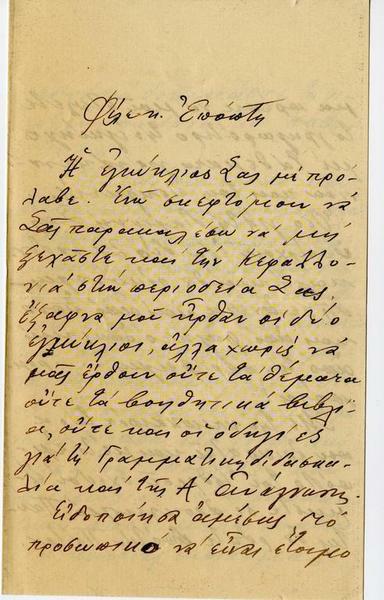 Φίλε κ. Ἐπόπτη
Ἡ ἐγκύκλιος Σας μὲ πρό-
λαβε. Ἐνῶ σκεφτόμουν νὰ
Σᾶς παρακαλέσω νὰ μὴ
ξεχάστε καὶ τὴν Κεφαλλο-
νιὰ στὴν περιοδεία Σας,
ἔξαφνα μοῦ ἦρθαν οἱ δύο
ἐγκύκλιοι, ἀλλὰ χωρὶς νὰ
μᾶς ἔρθουν οὔτε τὰ θέματα
οὔτε τὰ βοηθητικὰ βιβλί-
α, οὔτε καὶ οἱ ὁδηγίες
γιὰ τὴ Γραμματικὴ διδασκα-
λία καὶ τῆς Α΄ Ἀνάγνωσης.
Εἰδοποίησα ἀμέσως τὸ
προσωπικὸ νὰ εἶναι ἕτοιμο